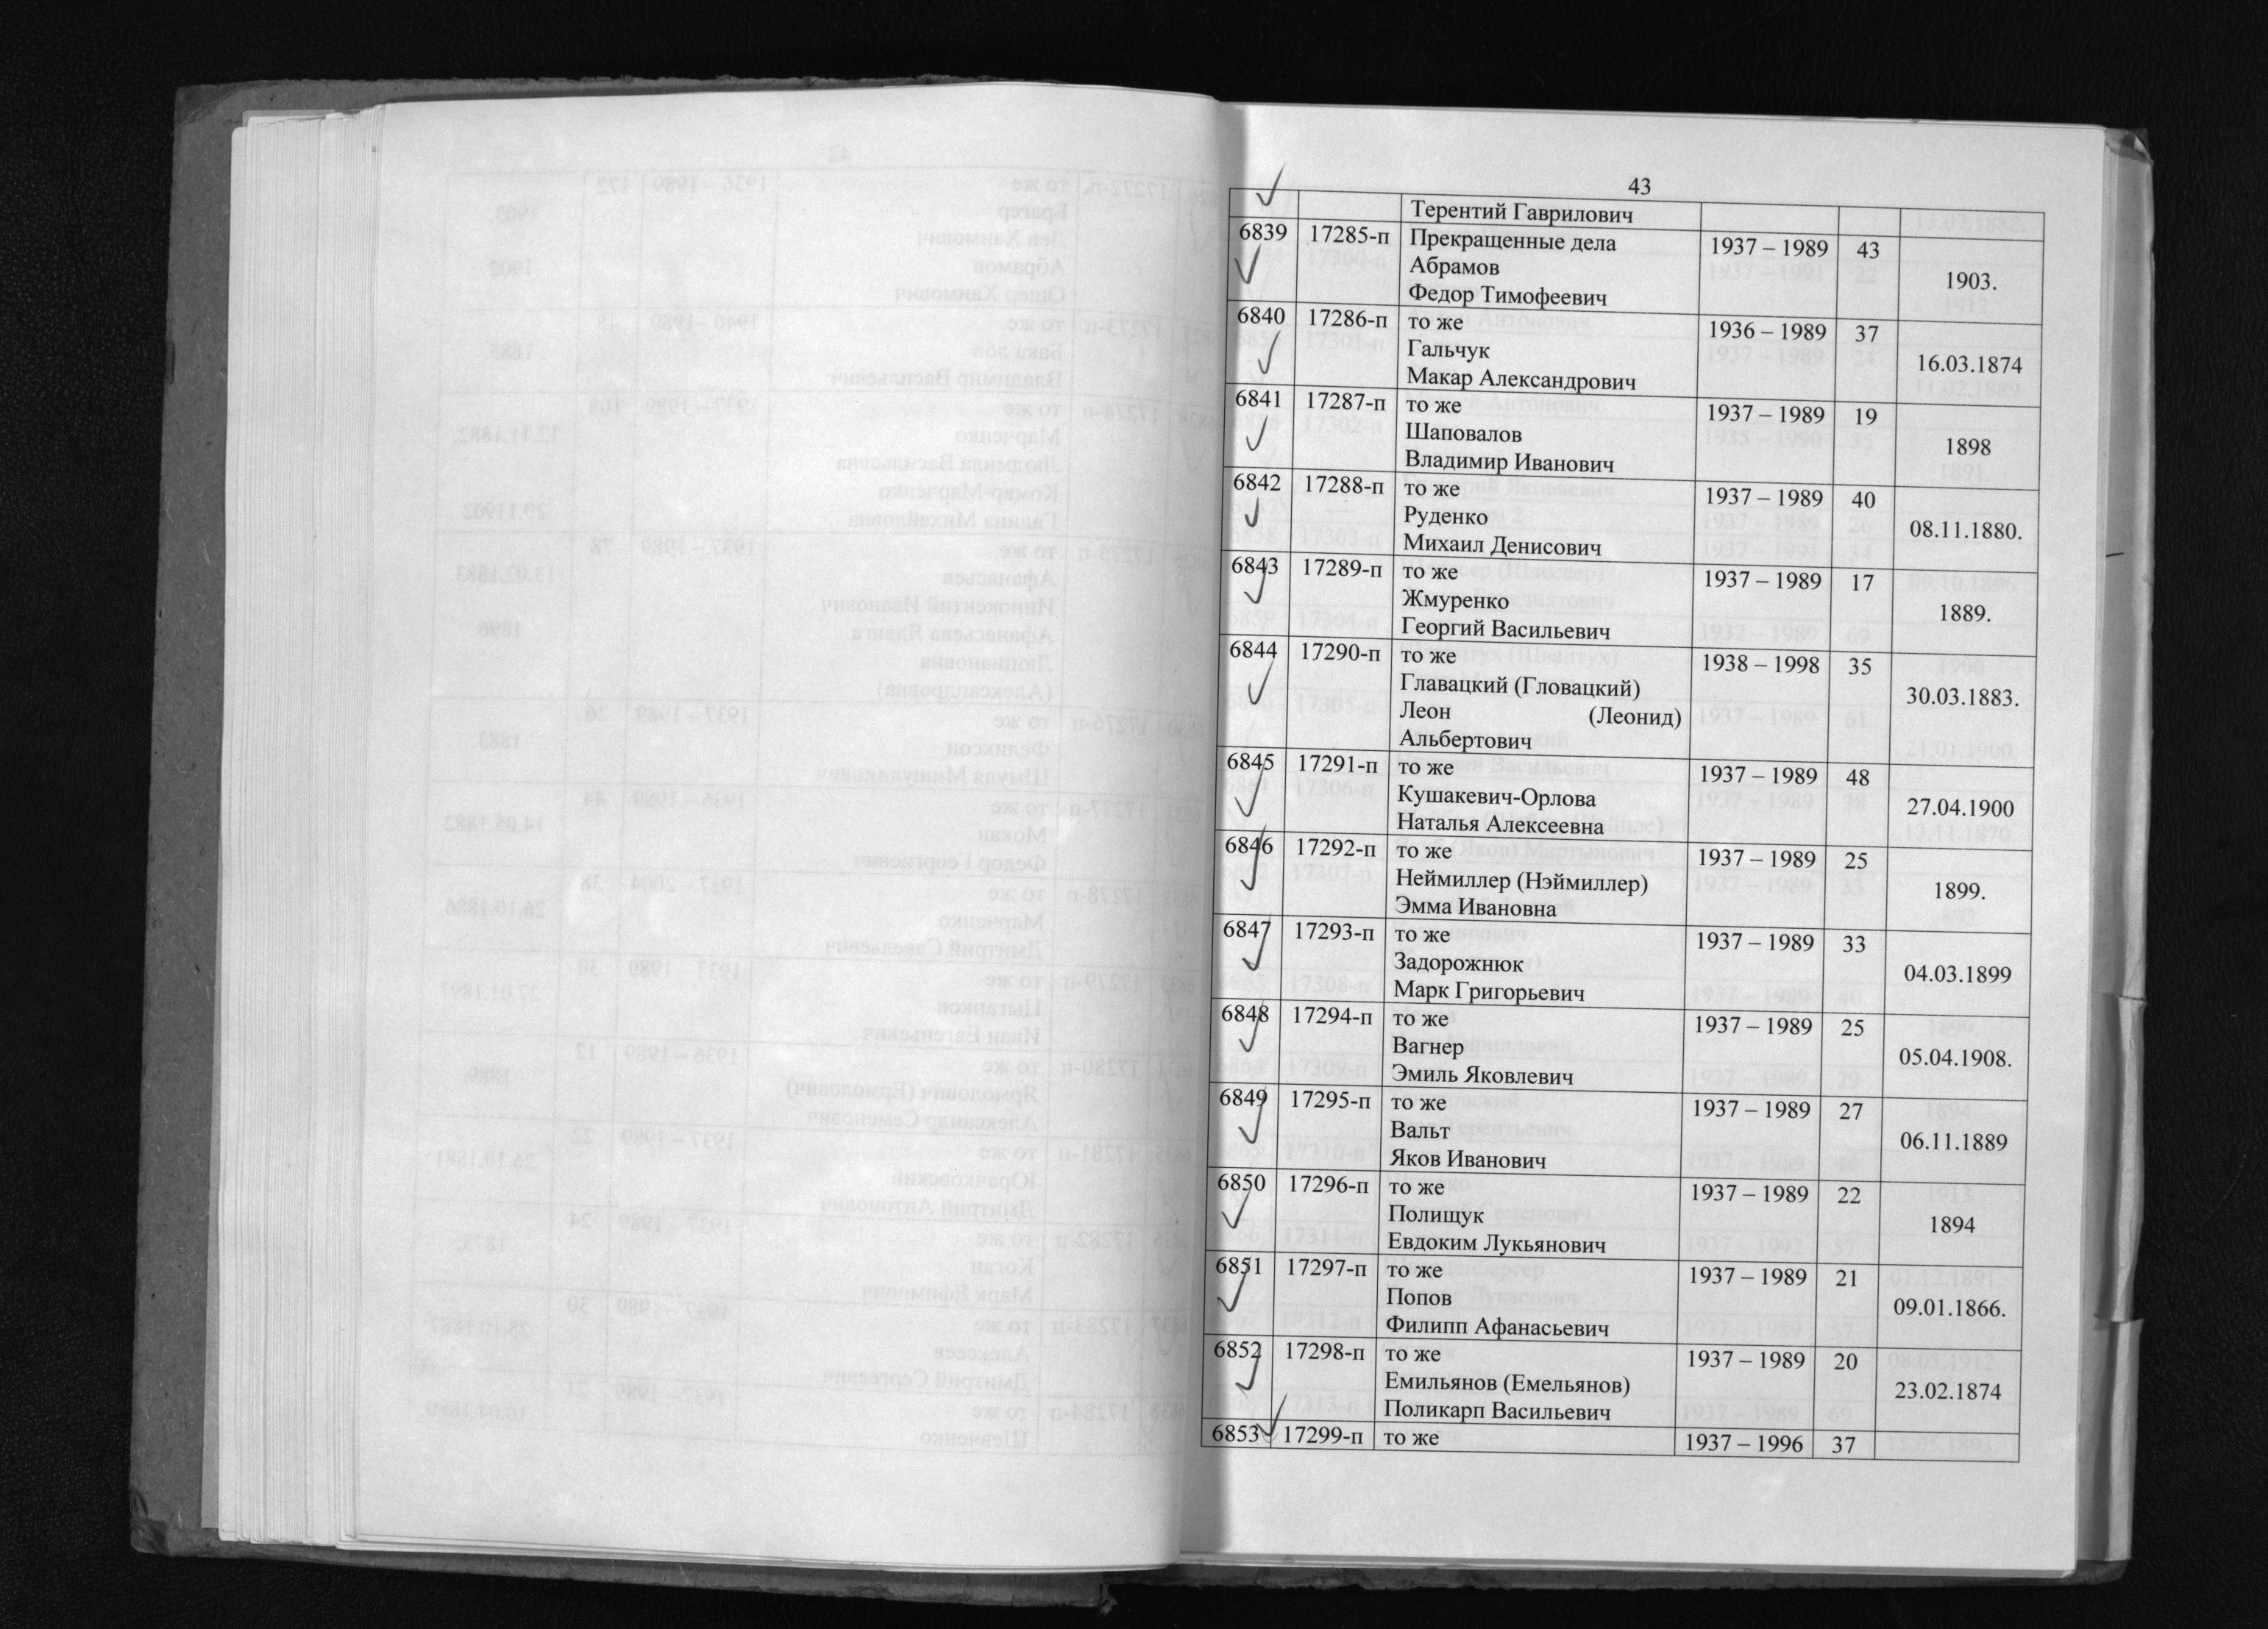 43
Терентий Гаврилович
6839 17285-п Прекращенные дела 1937 – 1989 43
Абрамов
1903.
Федор Тимофеевич
6840 17286-п то же 1936 – 1989 37
Гальчук
16.03.1874
Макар Александрович
6841 17287-п то же 1937 – 1989 19
Шаповалов
1898
Владимир Иванович
6842 17288-п то же 1937 – 1989 40
Руденко
08.11.1880.
Михаил Денисович
6843 17289-п то же 1937 – 1989 17
Жмуренко
1889.
Георгий Васильевич
6844 17290-п то же 1938 – 1998 35
Главацкий (Гловацкий)
30.03.1883.
Леон (Леонид)
Альбертович
6845 17291-п то же 1937 – 1989 48
Кушакевич-Орлова
27.04.1900
Наталья Алексеевна
6846 17292-п то же 1937 – 1989 25
Неймиллер (Нэймиллер)
1899.
Эмма Ивановна
6847 17293-п то же 1937 – 1989 33
Задорожнюк
04.03.1899
Марк Григорьевич
6848 17294-п то же 1937 – 1989 25
Вагнер
05.04.1908.
Эмиль Яковлевич
6849 17295-п то же 1937 – 1989 27
Вальт
06.11.1889
Яков Иванович
6850 17296-п то же 1937 – 1989 22
Полищук
1894
Евдоким Лукьянович
6851 17297-п то же 1937 – 1989 21
Попов
09.01.1866.
Филипп Афанасьевич
6852 17298-п то же 1937 – 1989 20
Емильянов (Емельянов)
23.02.1874
Поликарп Васильевич
6853 17299-п то же 1937 – 1996 37